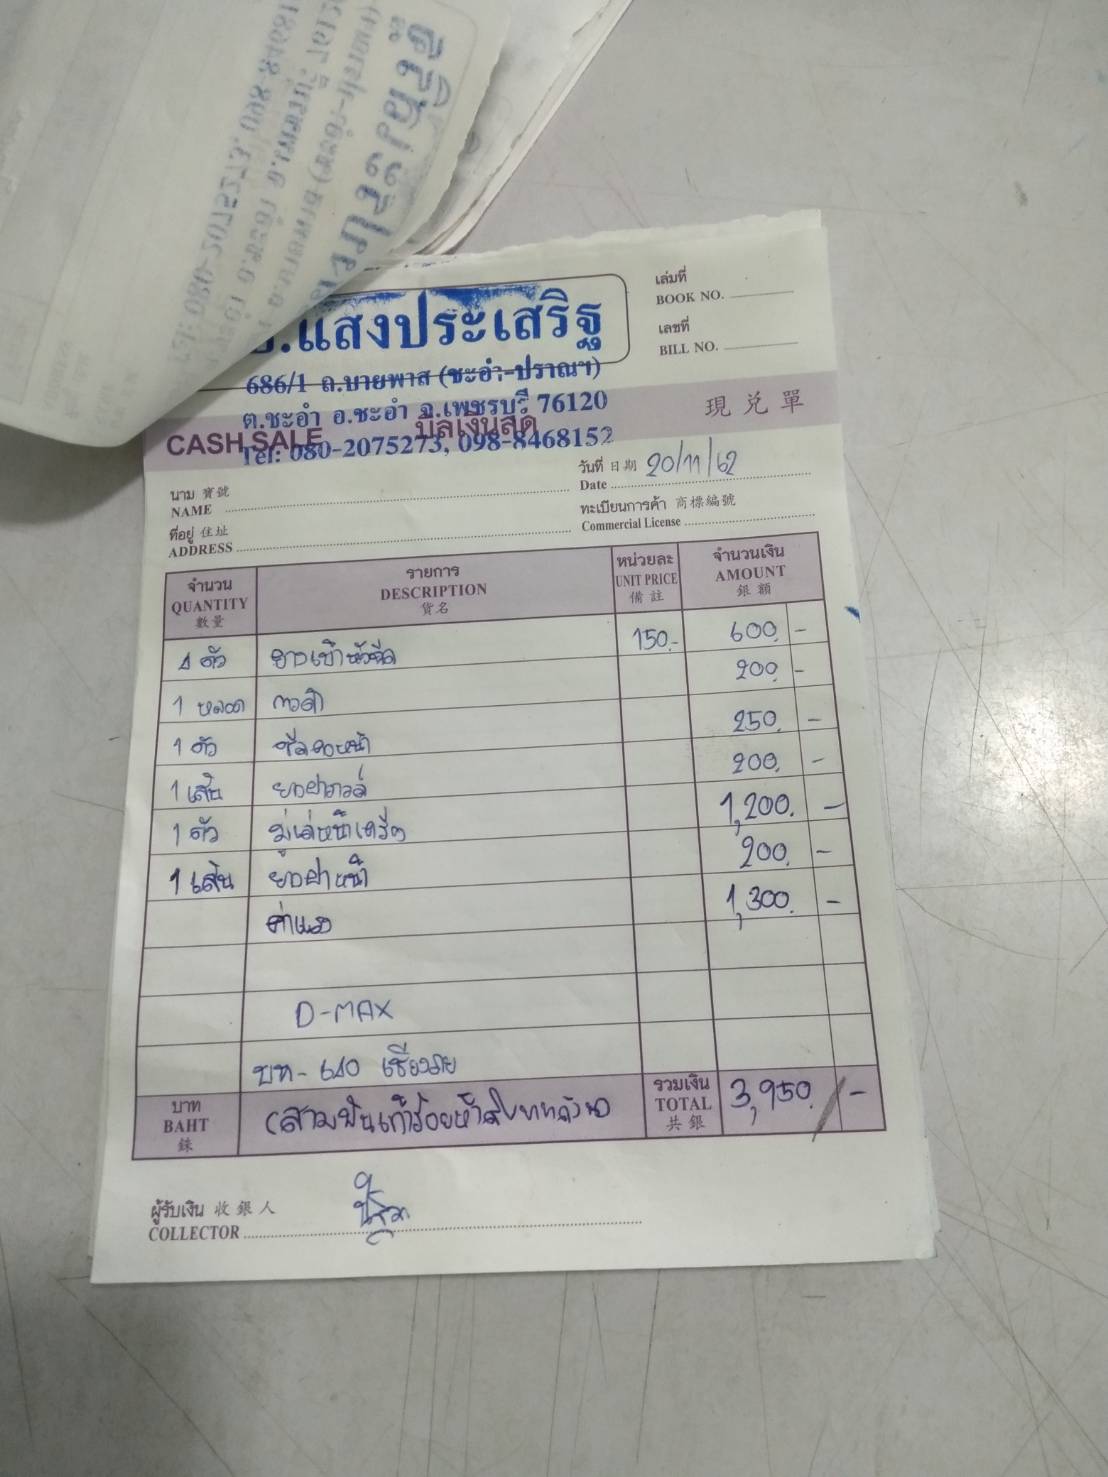 .แสงประเสริฐ
686/1 ถ.บายพาส (ชะอำ-ปราณฯ)
ต.ชะอำ อ.ชะอำ จ.เพชรบุรี 76120
Tel: 080-2075273, 098-8468152
เล่มที่
BOOK NO.
เลขที่
BILL NO.
CASH SALE บิลเงินสด 現兑單
วันที่ 日期 20/11/62
Date
นาม 寶號
NAME
ทะเบียนการค้า 商標編號
Commercial License
ที่อยู่ 住址
ADDRESS
จำนวน รายการ หน่วยละ จำนวนเงิน
QUANTITY DESCRIPTION UNIT PRICE AMOUNT
數量 貨名 備註 銀額
4 ตัว ยางเบ้าหัวฉีด 150.- 600.-
1 หลอด กาวดำ 200.-
1 ตัว ซีลคอหน้า 250.-
1 เส้น ยางฝาวาล์ว 200.-
1 ตัว มู่เล่หน้าเครื่อง 1,200.-
1 เส้น ยางฝาหน้า 200.-
ค่าแรง 1,300.-
D-MAX
บท-640 เชียงราย
บาท (สามพันเก้าร้อยห้าสิบบาทถ้วน) รวมเงิน 3,950.-
BAHT TOTAL
銖 共銀
ผู้รับเงิน 收銀人
COLLECTOR